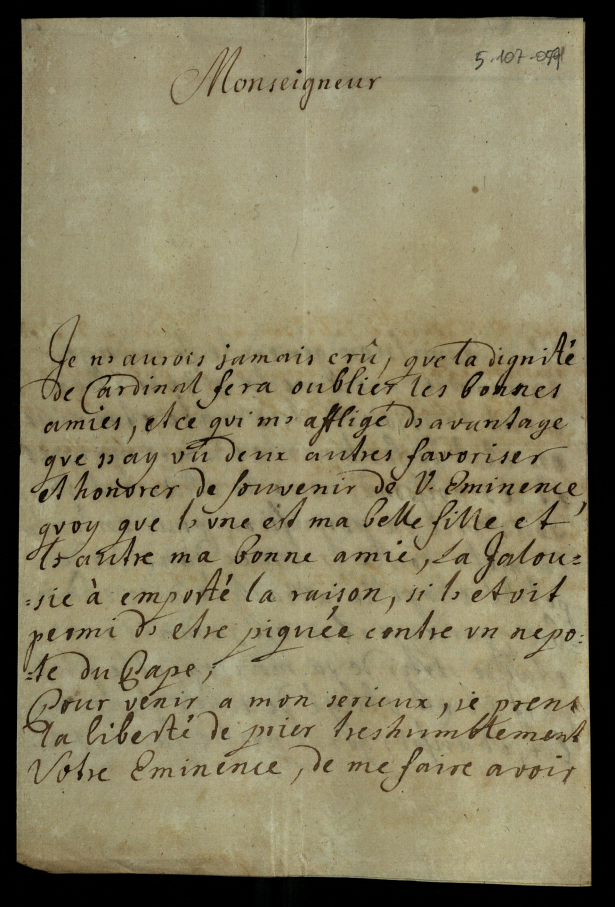 5-107-059
Monseigneur
Je n'aurois jamais crû, que la dignité
de Cardinal fera oublier les bonnes
amies, et ce qui m'afflige d'avantage
que j'ay vû deux autres favoriser
et honorer de souvenir de V. Eminence,
quoy que l'une est ma belle fille et
l'autre ma bonne amie, La Jalou=
=sie à emporté la raison, si l'etoit
permi d'etre piquée contre un nepo=
=te du Pape;
Pour venir a mon serieux, je prens
la liberté de prier treshumblement
Votre Eminence, de me faire avoir